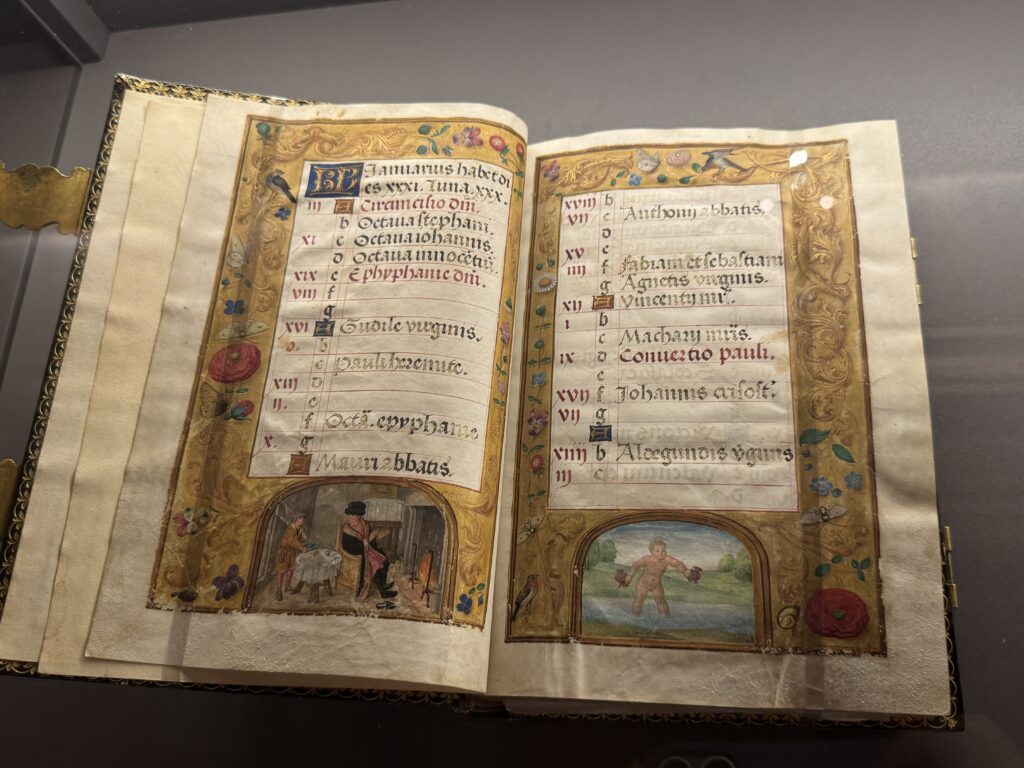 KL Januarius habet di
es xxxi. Luna. xxx.
iii A Circuncisio dñi.
b Octava stephani.
xi c Octava iohannis.
d Octava innocētiũ
xix e Ephyphanie dñi.
viii f
g
xvi A Gudile virginis.
v. b
c Pauli heremite.
xiii d
ii. e
f Octā. epyphanie
x. g
A Mauri abbatis.
xviii b
vii c Anthonij abbatis.
d
xv e
iiii f fabiani et sebastiani
g Agnetis virginis.
xii A Vincentij mr̃.
i b
c Macharij mr̃is.
ix d Convertio pauli.
e
xvii f Johannis crisost.
vii g
A
xiiii b Aldegundis vginis
iii c